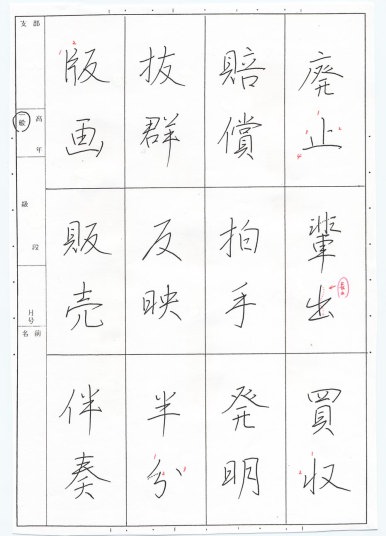 廃止
輩出
買収
賠償
拍手
発明
抜群
反映
半分
版画
販売
伴奏
支部
一般
高年
級
段
月号
名前